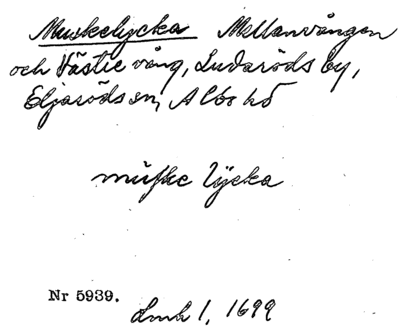 Muskelycka Mellanvången
och Västre vång, Ludaröds by,
Eljaröds sn, Albo hd
muske lÿcka
Nr 5939.
Lmh 1, 1699